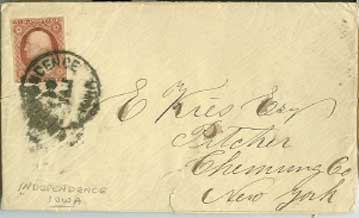 DENCE
E Kries Esq
Pitcher
Chemung Co
New York
INDEPENDENCE
IOWA